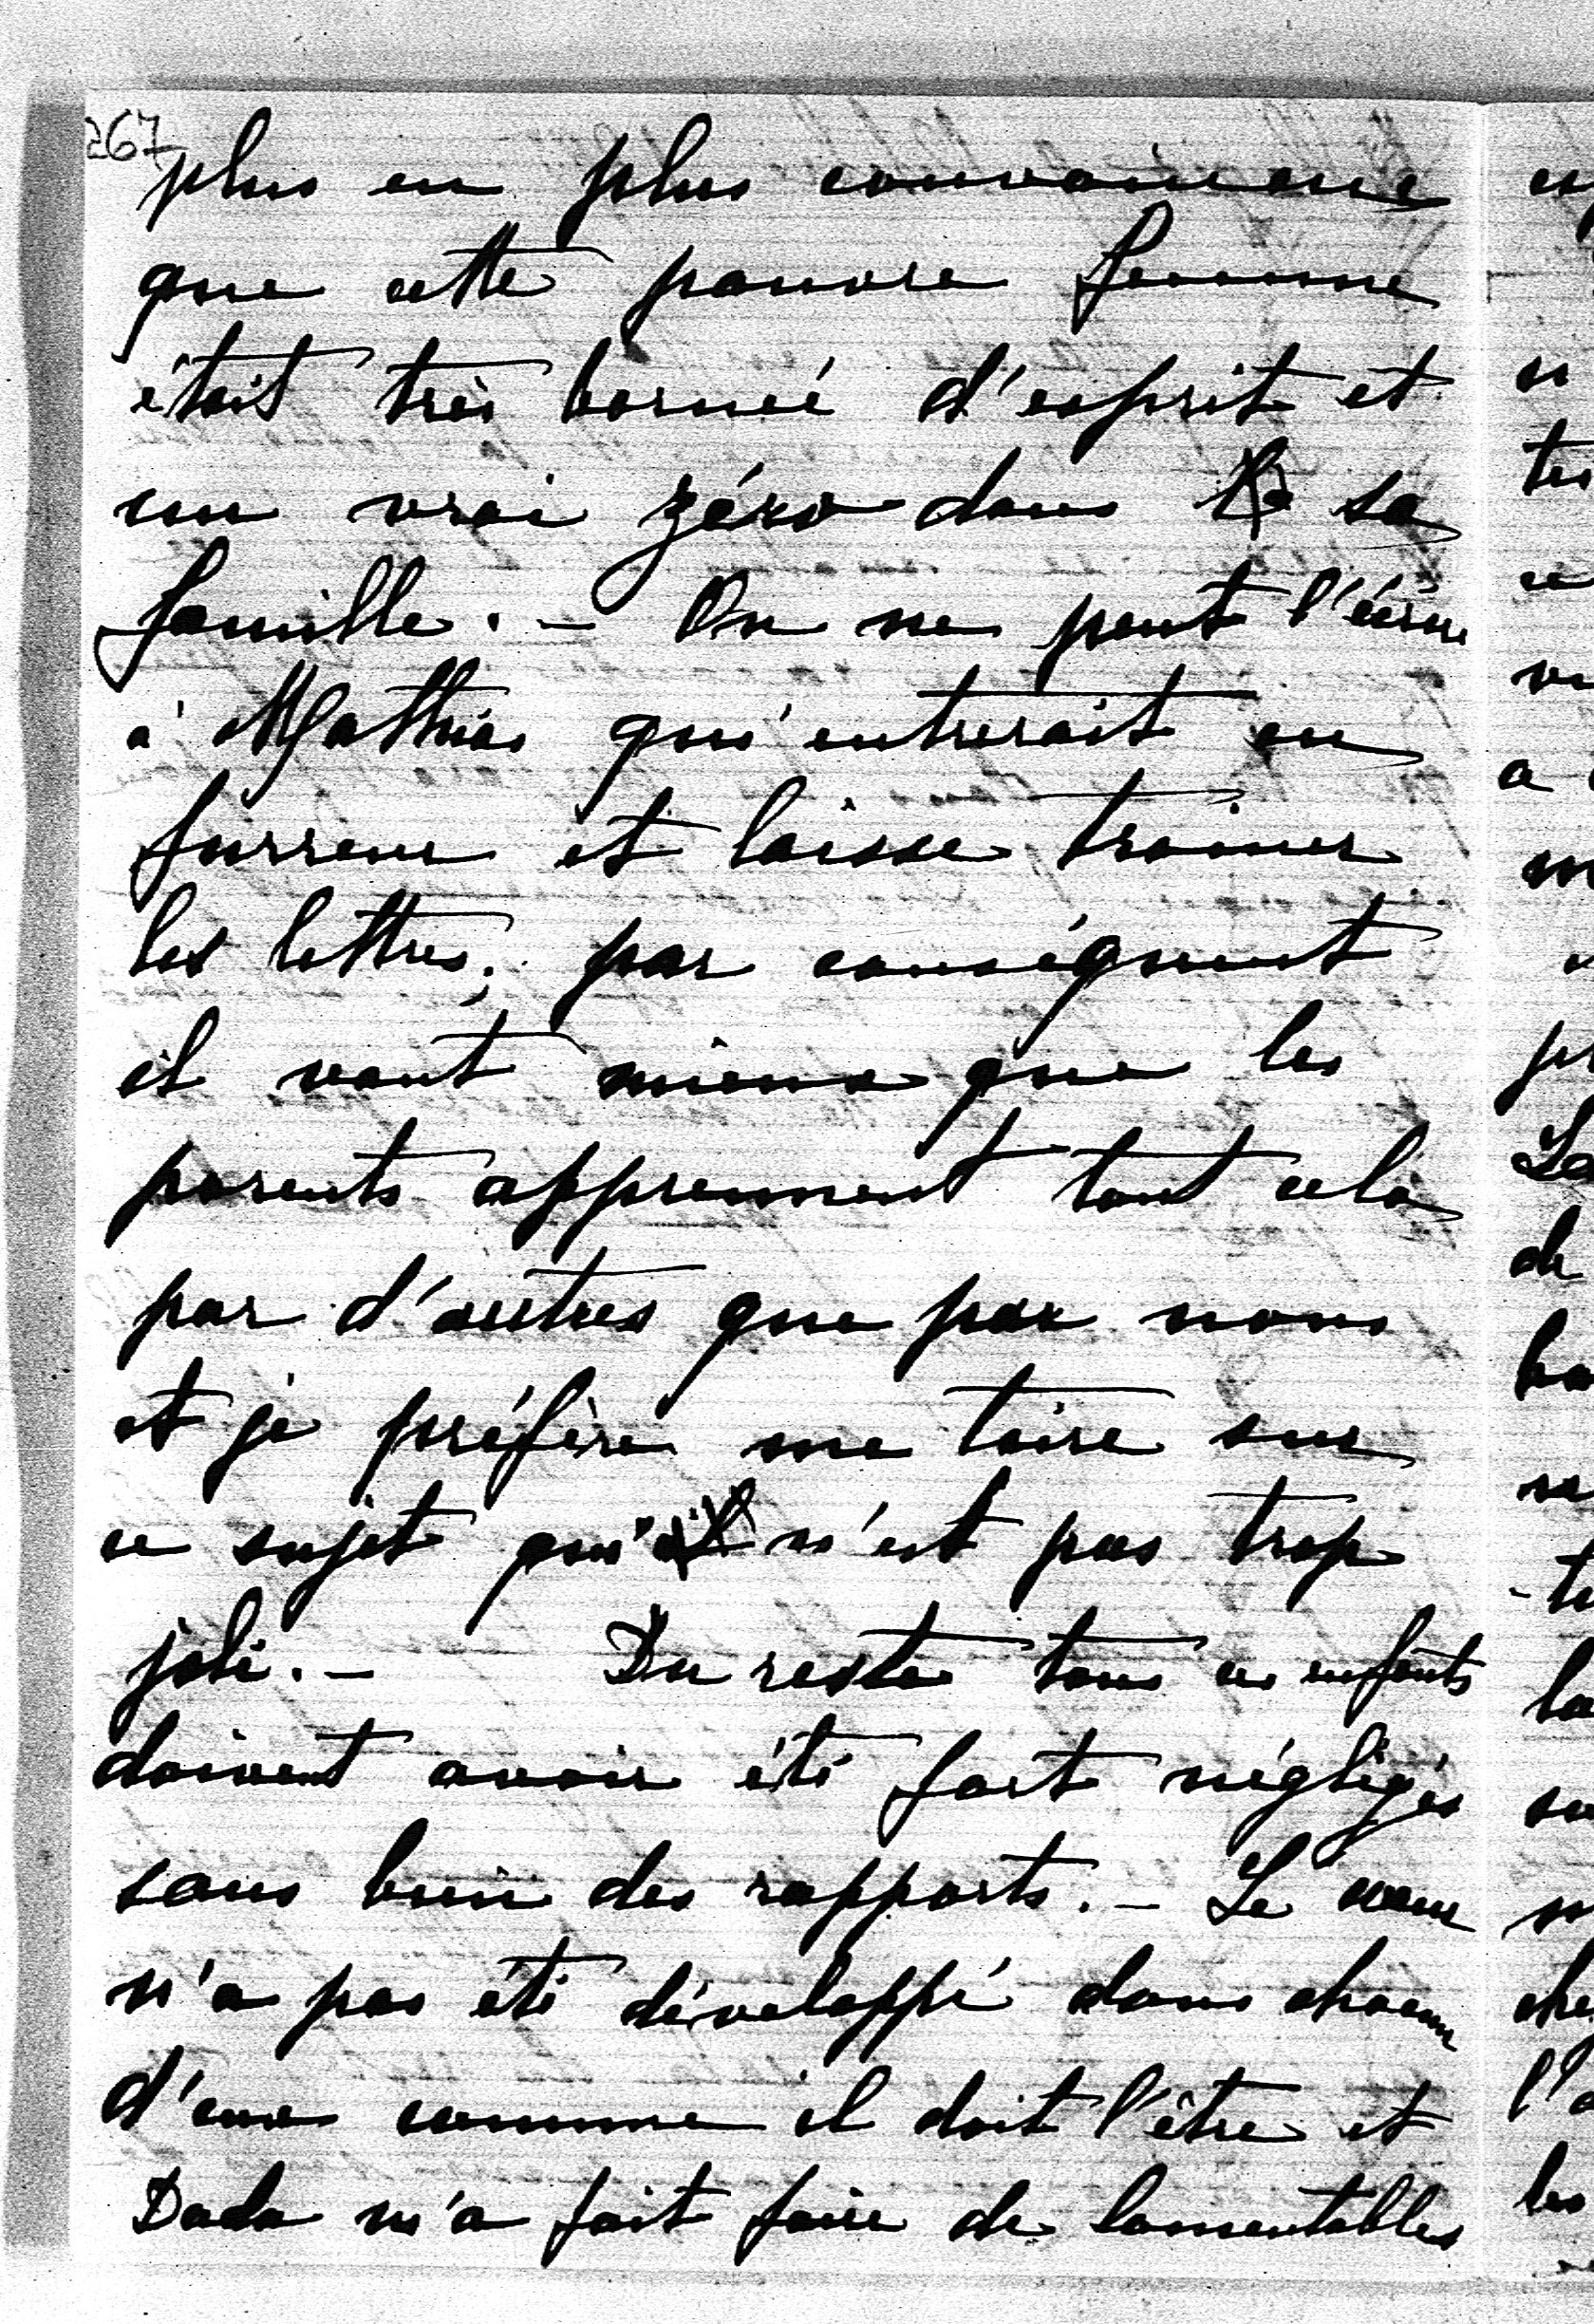 267
plus en plus convaincue
que cette pauvre femme
était très bornée d'esprit et
un vrai zéro dans sa
famille. - On ne peut l'écrire
à Mathias qui entrerait en
furreur et laisse trainer
les lettres; par conséquent
il vaut mieux que les
parents apprennent tout cela
par d'autres que par nous
et je préfère me taire sur
ce sujet qui n'est pas trop
joli. - Du reste tous ces enfants
doivent avoir été fort négligés
sous bien des rapports. - Le cœur
n'a pas été développé dans chacun
d'eux comme il doit l'être et
Dada m'a fait faire de lamentables